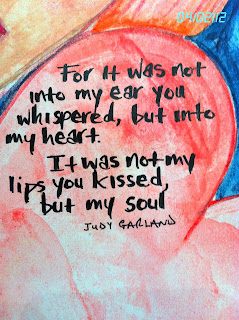 04/02/12
For it was not
into my ear you
whispered, but into
my heart.
It was not my
lips you kissed,
but my soul
JUDY GARLAND